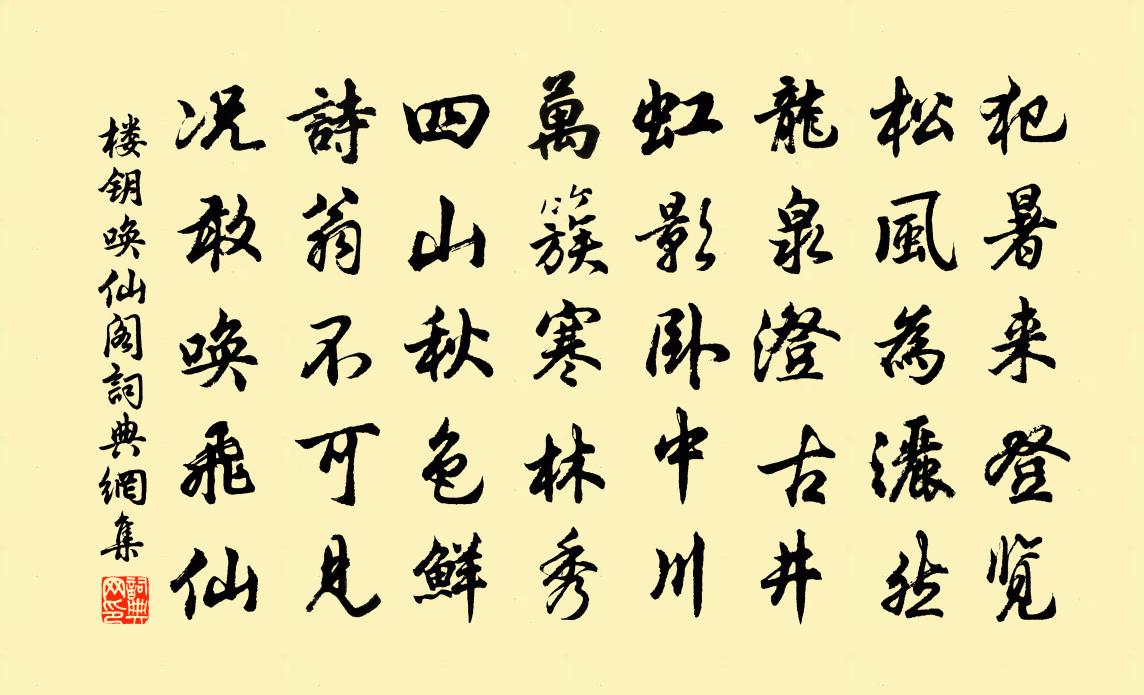 犯暑来登览
松風為灑然
龍泉澄古井
虹影卧中川
萬簇寒林秀
四山秋色鮮
詩翁不可見
况敢唤飛仙
楼钥唤仙阁詞典網集
詞典
网印